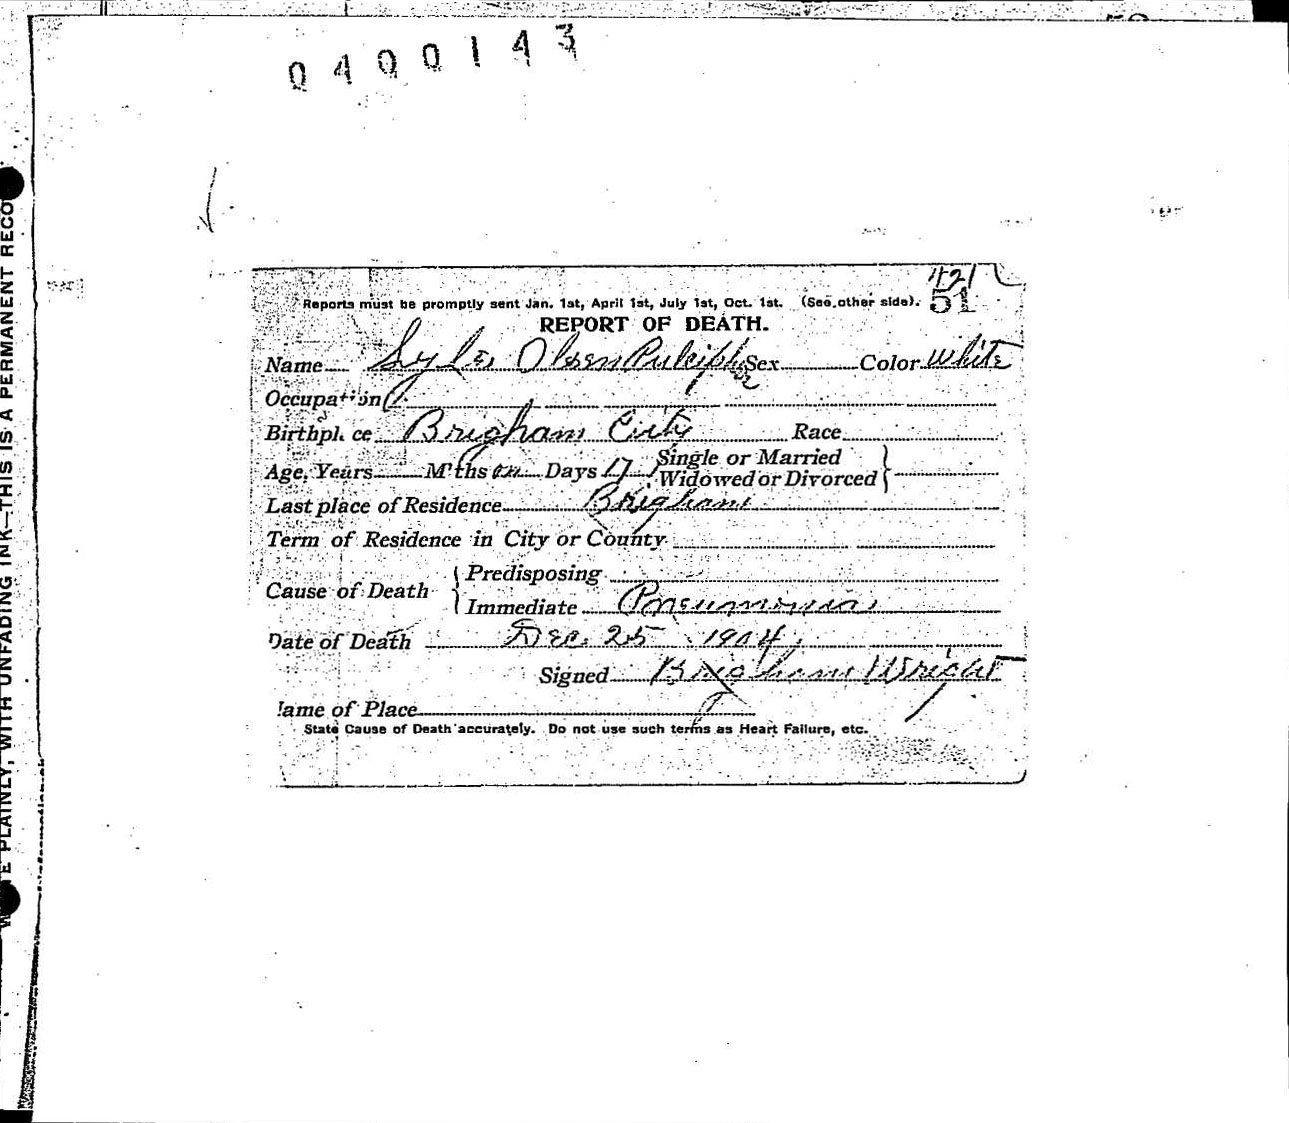 0400143
421
Reports must be promptly sent Jan. 1st, April 1st, July 1st, Oct. 1st. (See other side). 51
REPORT OF DEATH.
Name Olsen Pulcipher Sex Color White
Occupation
Birthplace Brigham City Race
Age, Years M'ths Days 17 Single or Married
Widowed or Divorced
Last place of Residence Brigham
Term of Residence in City or County
Cause of Death Predisposing
Immediate Pneumonia
Date of Death Dec. 25 1904
Signed Brigham Wright
Name of Place
State Cause of Death accurately. Do not use such terms as Heart Failure, etc.
PLAINLY, WITH UNFADING INK—THIS IS A PERMANENT RECO